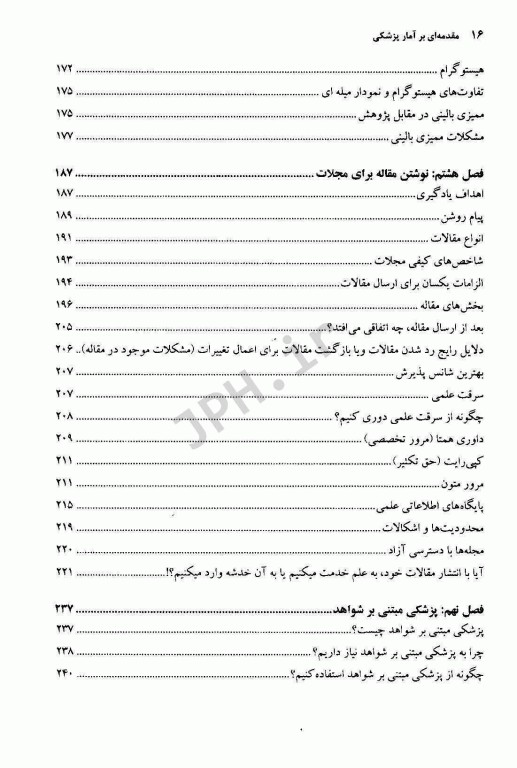 ۱۶ مقدمه‌ای بر آمار پزشکی
هیستوگرام ۱۷۲
تفاوت‌های هیستوگرام و نمودار میله ای ۱۷۵
ممیزی بالینی در مقابل پژوهش ۱۷۵
مشکلات ممیزی بالینی ۱۷۷
فصل هشتم: نوشتن مقاله برای مجلات ۱۸۷
اهداف یادگیری ۱۸۷
پیام روشن ۱۸۹
انواع مقالات ۱۹۱
شاخص‌های کیفی مجلات ۱۹۳
الزامات یکسان برای ارسال مقالات ۱۹۴
بخش‌های مقاله ۱۹۶
بعد از ارسال مقاله، چه اتفاقی می‌افتد؟ ۲۰۵
دلایل رایج رد شدن مقالات ویا بازگشت مقالات برای اعمال تغییرات (مشکلات موجود در مقاله).. ۲۰۶
بهترین شانس پذیرش ۲۰۷
سرقت علمی ۲۰۷
چگونه از سرقت علمی دوری کنیم؟ ۲۰۸
داوری همتا (مرور تخصصی) ۲۰۹
کپی‌رایت (حق تکثیر) ۲۱۱
مرور متون ۲۱۱
پایگاه‌های اطلاعاتی علمی ۲۱۵
محدودیت‌ها و اشکالات ۲۱۹
مجله‌ها با دسترسی آزاد ۲۲۰
آیا با انتشار مقالات خود، به علم خدمت میکنیم یا به آن خدشه وارد میکنیم؟! ۲۲۱
فصل نهم: پزشکی مبتنی بر شواهد ۲۳۷
پزشکی مبتنی بر شواهد چیست؟ ۲۳۷
چرا به پزشکی مبتنی بر شواهد نیاز داریم؟ ۲۳۸
چگونه از پزشکی مبتنی بر شواهد استفاده کنیم؟ ۲۴۰
JPH.ir